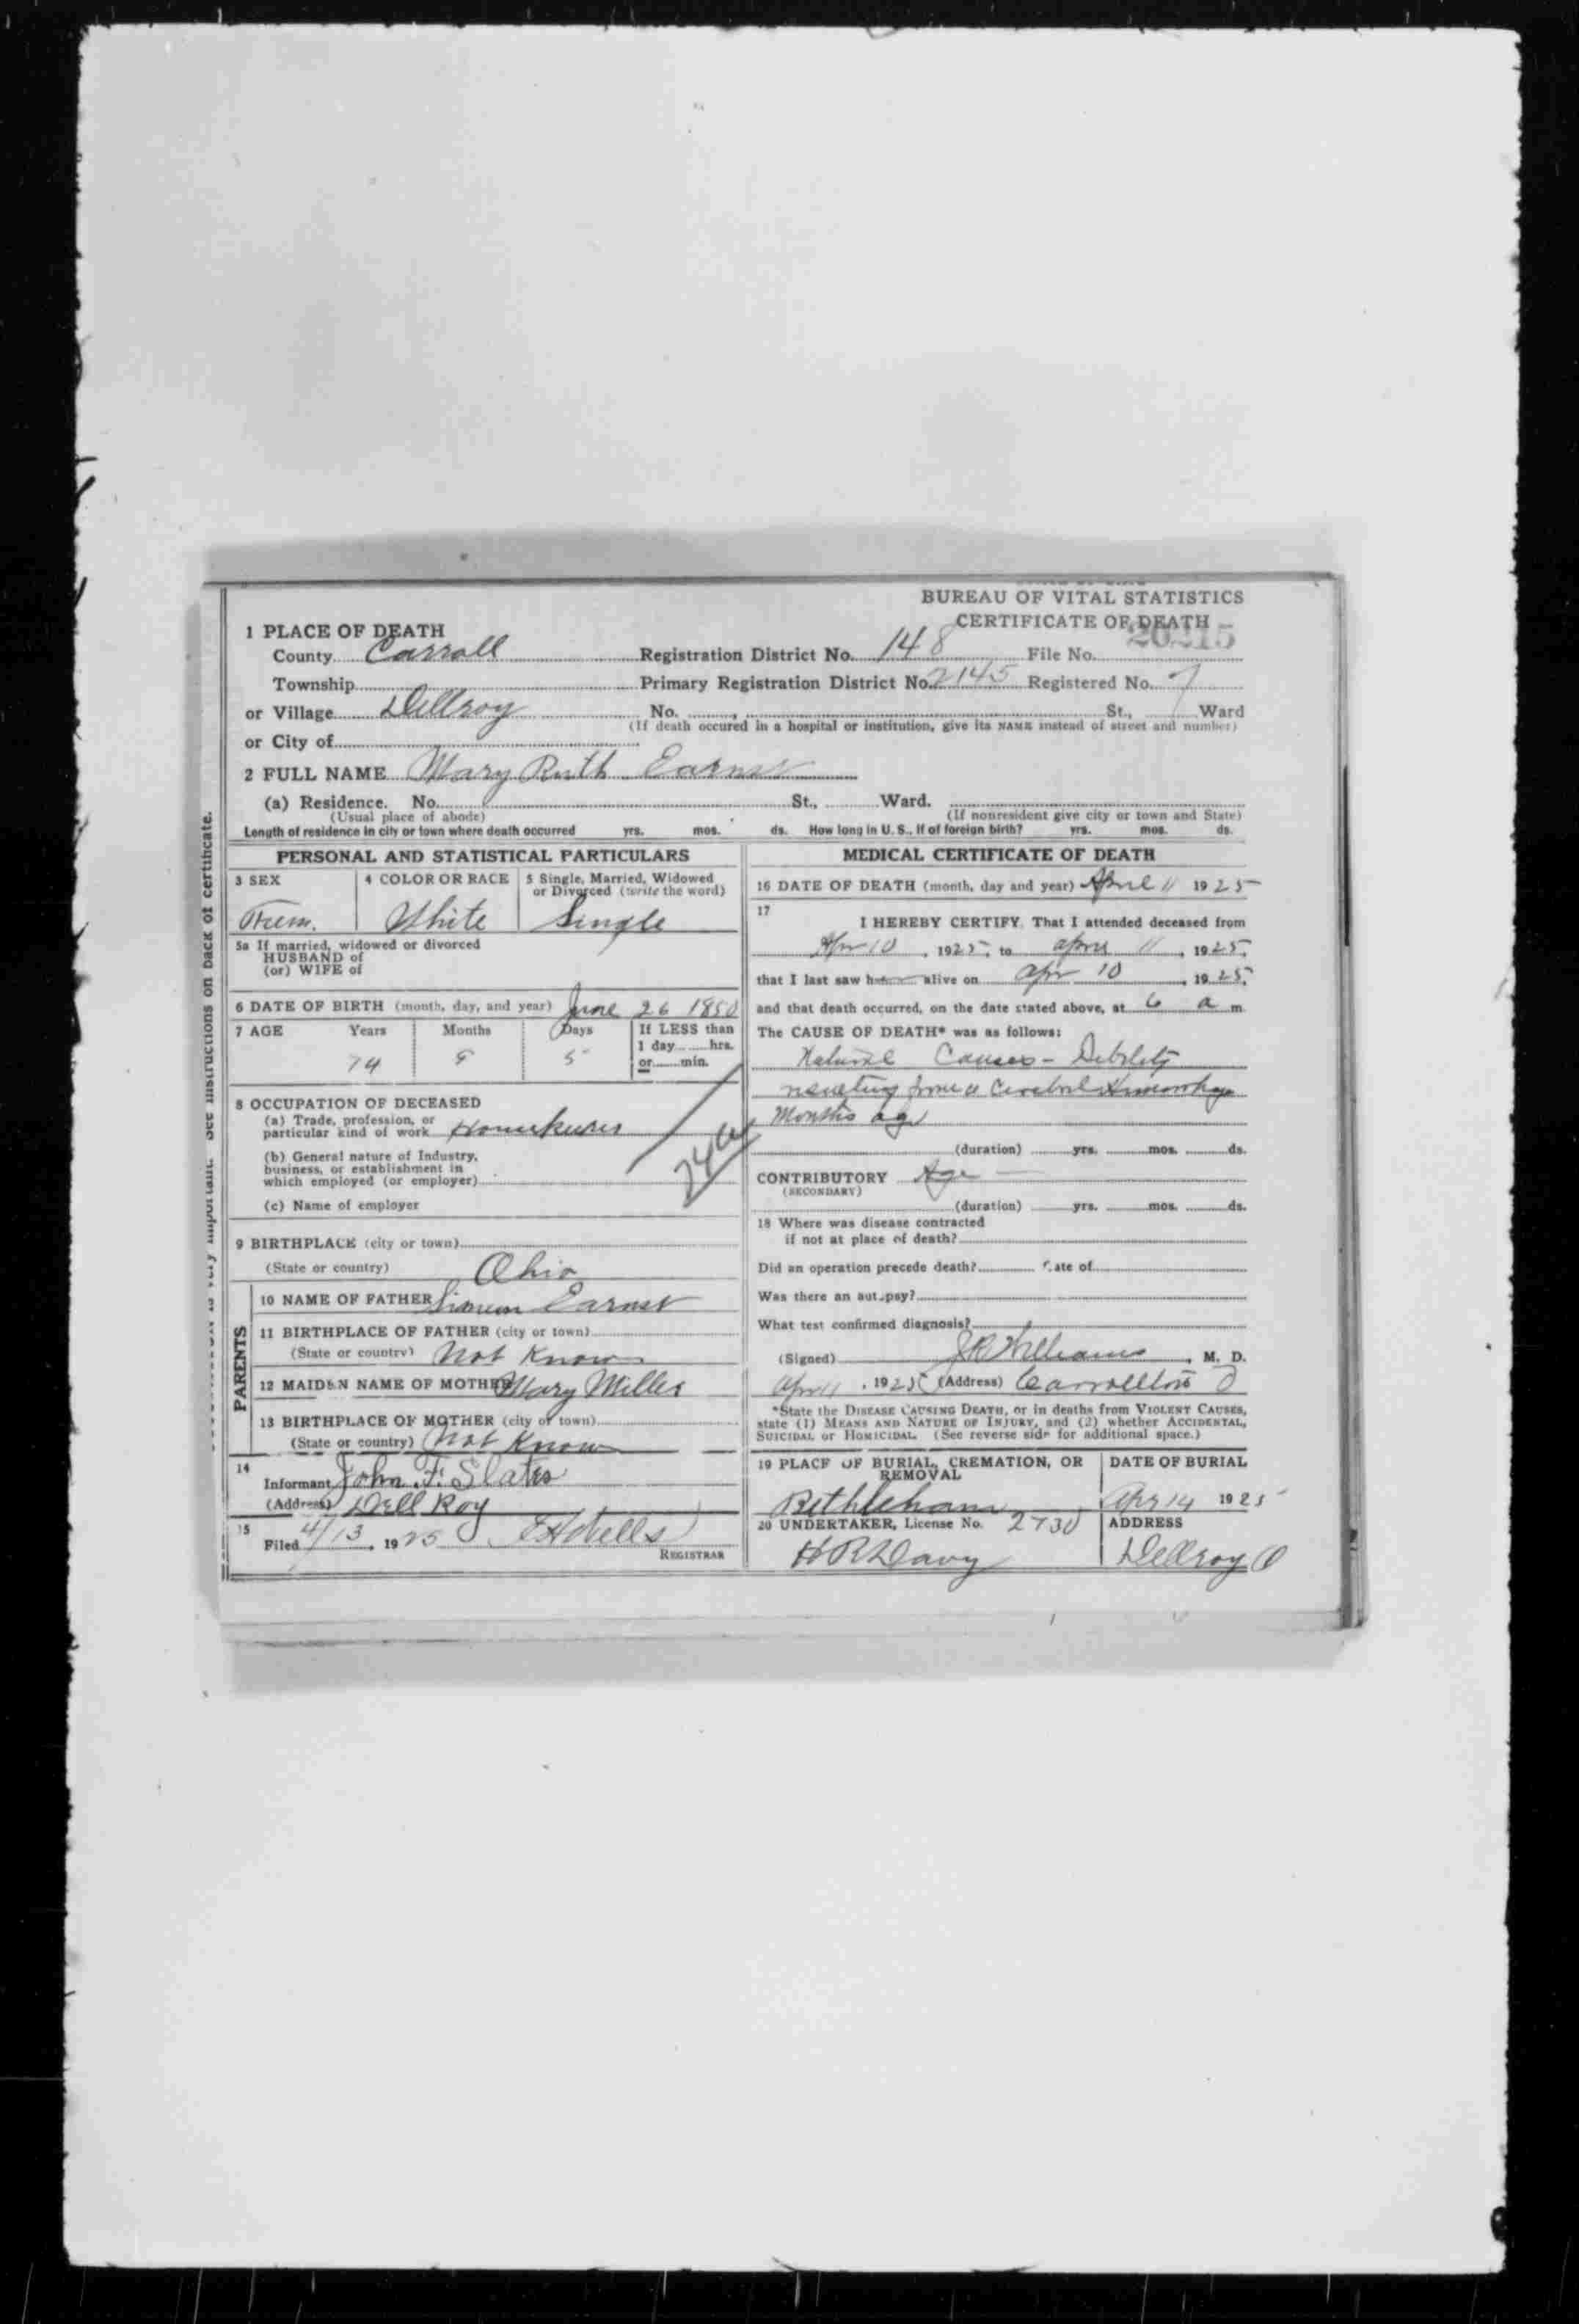 BUREAU OF VITAL STATISTICS
CERTIFICATE OF DEATH
1 PLACE OF DEATH
County Carroll Registration District No. 148 File No. 20215
Township Primary Registration District No. 2145 Registered No. 7
or Village Dellroy No. , St., Ward
(If death occured in a hospital or institution, give its NAME instead of street and number)
or City of
2 FULL NAME Mary Ruth Earnst
(a) Residence. No. St., Ward.
(Usual place of abode) (If nonresident give city or town and State)
Length of residence in city or town where death occurred yrs. mos. ds. How long in U. S., if of foreign birth? yrs. mos. ds.
See instructions on back of certificate.
PERSONAL AND STATISTICAL PARTICULARS
3 SEX 4 COLOR OR RACE 5 Single, Married, Widowed
or Divorced (write the word)
Fem. White Single
5a If married, widowed or divorced
HUSBAND of
(or) WIFE of
6 DATE OF BIRTH (month, day, and year) June 26 1850
7 AGE Years Months Days If LESS than
1 day hrs.
74 5 or min.
8 OCCUPATION OF DECEASED
(a) Trade, profession, or
particular kind of work
(b) General nature of Industry,
business, or establishment in
which employed (or employer)
(c) Name of employer
9 BIRTHPLACE (city or town)
(State or country) Ohio
PARENTS
10 NAME OF FATHER Simeon Earnst
11 BIRTHPLACE OF FATHER (city or town)
(State or country) Not Known
12 MAIDEN NAME OF MOTHER Mary Miller
13 BIRTHPLACE OF MOTHER (city or town)
(State or country) Not Known
14
Informant John F. Slates
(Address) Dell Roy
15
Filed 4/13, 1925
REGISTRAR
MEDICAL CERTIFICATE OF DEATH
16 DATE OF DEATH (month, day and year) April 11 1925
17
I HEREBY CERTIFY, That I attended deceased from
Apr 10, 1925, to April 11, 1925,
that I last saw her alive on Apr 10, 1925,
and that death occurred, on the date stated above, at 6 a m
The CAUSE OF DEATH* was as follows:
Natural Causes - Debility
resulting from a Cerebral Hemorrhage
Months ago
(duration) yrs. mos. ds.
CONTRIBUTORY Age
(SECONDARY)
(duration) yrs. mos. ds.
18 Where was disease contracted
if not at place of death?
Did an operation precede death? Date of
Was there an autopsy?
What test confirmed diagnosis?
(Signed) J R Williams, M. D.
Apr 11, 1925 (Address) Carrollton O
*State the DISEASE CAUSING DEATH, or in deaths from VIOLENT CAUSES,
state (1) MEANS AND NATURE OF INJURY, and (2) whether ACCIDENTAL,
SUICIDAL or HOMICIDAL. (See reverse side for additional space.)
19 PLACE OF BURIAL, CREMATION, OR
REMOVAL
DATE OF BURIAL
Bethleham Apr 14 1925
20 UNDERTAKER, License No. 2730 ADDRESS
H R Davy Dellroy O